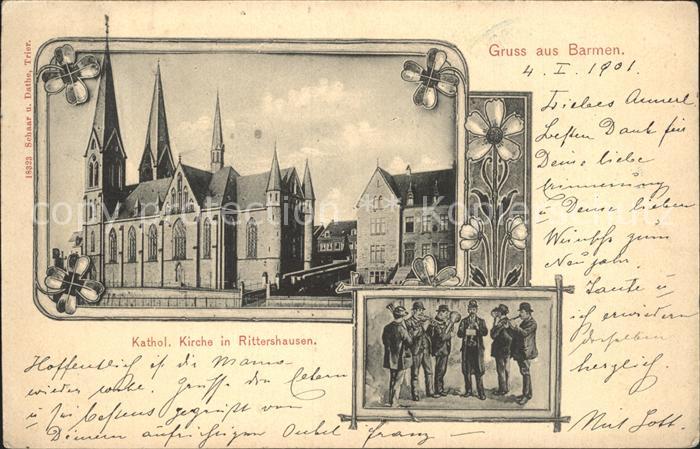 18323 Schaar u. Dathe, Trier.
Gruss aus Barmen.
4. I. 1901.
Liebes Annerl
besten Dank für
Deine liebe
Erinnerung
u Deine lieben
Wünsche zum
Neujahr.
Tante u
ich erwiedern
dieselben
herzlich.
Mit Gott.
Kathol. Kirche in Rittershausen.
Hoffentlich ist die Mama
wieder wohl. Grüße die Eltern
u sei bestens gegrüßt von
Deinem aufrichtigen Onkel Franz
copyright protection Kopierschutz